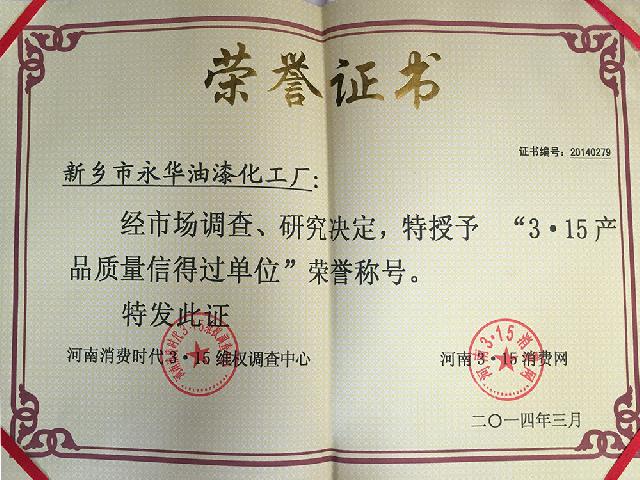 荣誉证书
证书编号：20140279
新乡市永华油漆化工厂：
经市场调查、研究决定，特授予 “3·15产
品质量信得过单位”荣誉称号。
特发此证
河南消费时代3·15维权调查中心 河南3·15消费网
河南3·15消费网
二〇一四年三月